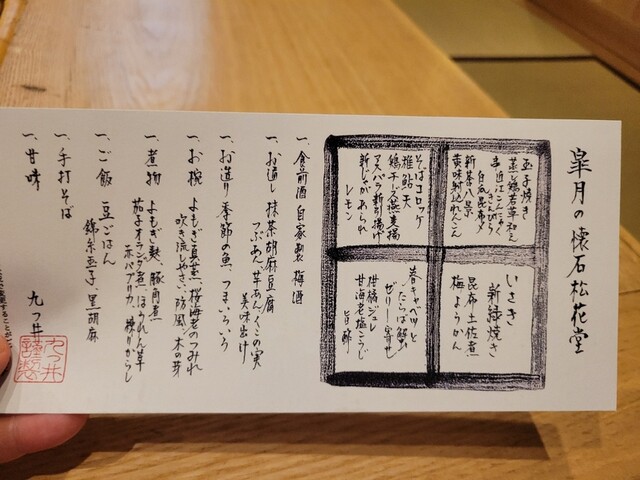 皐月の懐石松花堂
玉子焼き
蒸し鶏若草和え
串 近江こんにゃく
白瓜昆布〆
新茶八景
黄味射込れんこん
そばコロッケ
稚鮎
鶏チーズ燕麦揚
アスパラ新り揚げ
新じゃがあられ
レモン
いさき
新緑焼き
昆布土佐煮
梅ようかん
春キャベツと
たらば蟹
ゼリー寄せ
柑橘ジュレ
甘海老塩こうじ
旨酢
一、食前酒 自家製 梅酒
一、お通し 抹茶胡麻豆腐
つぶあん、芋あん、くこの実
美味出汁
一、お造り 季節の魚 つまいろいろ
一、お椀 よもぎ真蒸 桜海老のつみれ
吹き流しやさい、防風、木の芽
一、煮物 よもぎ麩、豚角煮
茄子オランダ煮、ほうれん草
赤パプリカ、練りからし
一、ご飯 豆ごはん
錦糸玉子、黒胡麻
一、手打そば
一、甘味
九つ井
九つ井
謹製